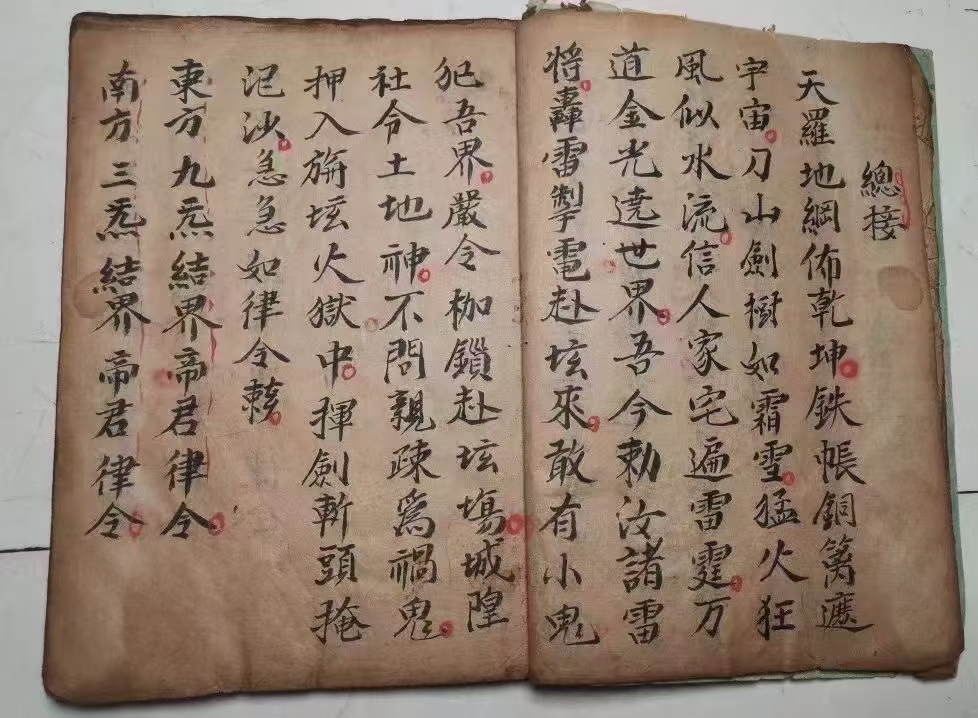 總接
天羅地綱佈乾坤鉄帳銅篱遮
宇宙刀山劍樹如霜雪猛火狂
風似水流信人家宅遍雷霆万
道金光遶世界吾今勅汝諸雷
将轟雷掣電赴垓來敢有小鬼
犯吾界嚴令枷鎖赴垓塲城隍
社令土地神不問親疎爲禍鬼
押入旃垓火獄中揮劍斬頭掩
泥沙急急如律令
東方九炁結界帝君律令
南方三炁結界帝君律令